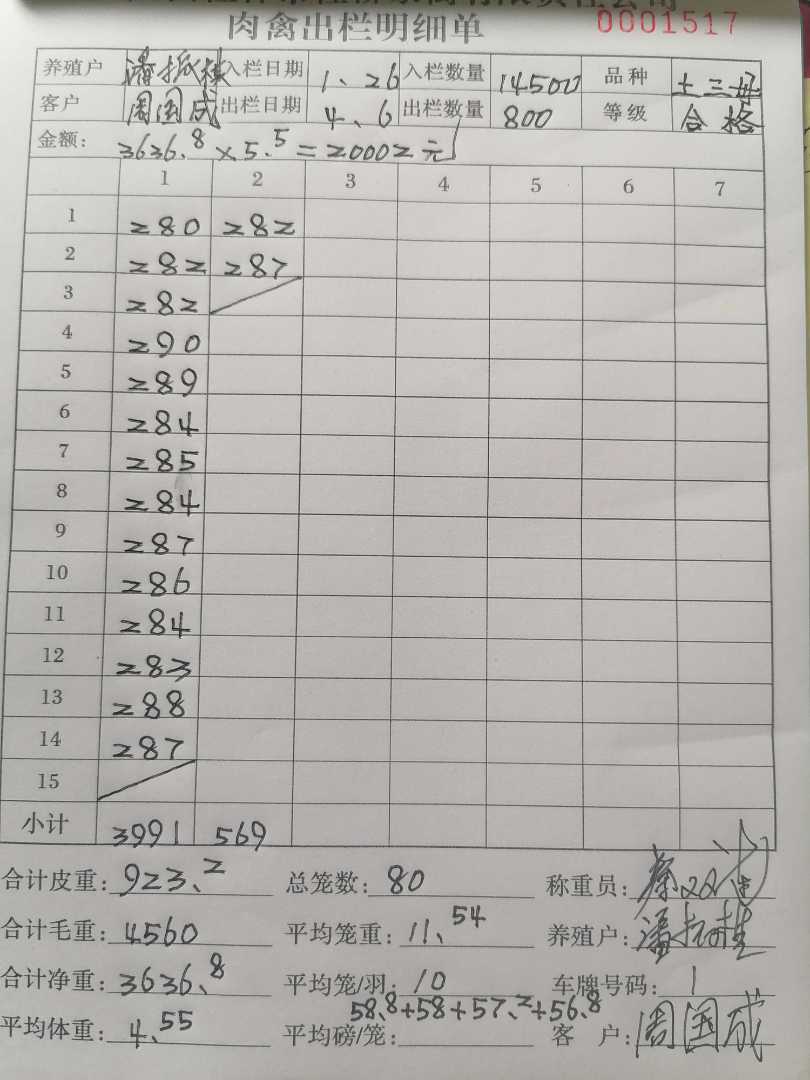 肉禽出栏明细单 0001517
养殖户 潘振桂 入栏日期 1、26 入栏数量 14500 品种 土三
客户 周国成 出栏日期 4、6 出栏数量 800 等级 合格
金额: 3636.8 × 5.5 = 20002元
1 2 3 4 5 6 7
1 280 282
2 282 287
3 282
4 290
5 289
6 284
7 285
8 284
9 287
10 286
11 284
12 283
13 288
14 287
15
小计 3991 569
合计皮重: 923.2 总笼数: 80 称重员:
合计毛重: 4560 平均笼重: 11.54 养殖户: 潘振桂
合计净重: 3636.8 平均笼/羽: 10 车牌号码: 1
58.8+58+57.2+56.8
平均体重: 4.55 平均磅/笼: 客户: 周国成